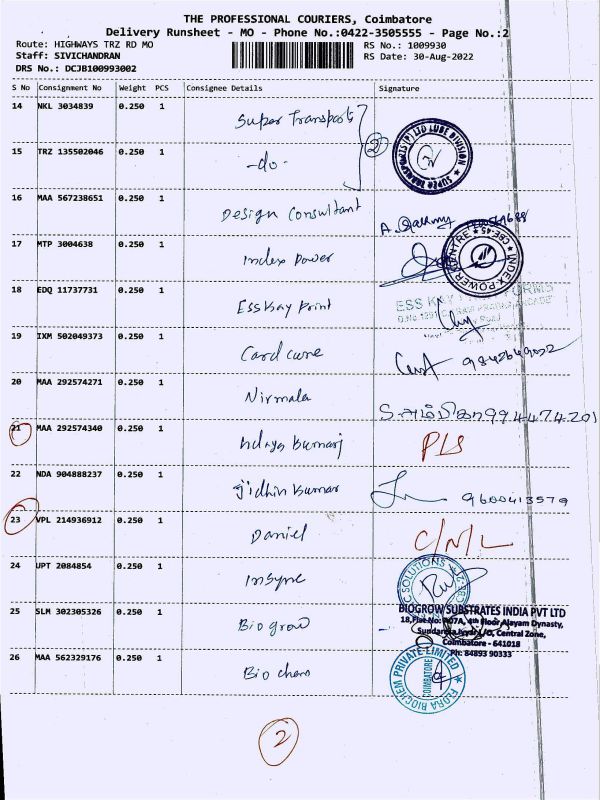 THE PROFESSIONAL COURIERS, Coimbatore
Delivery Runsheet - MO - Phone No.:0422-3505555 - Page No.:2
Route: HIGHWAYS TRZ RD MO
RS No.: 1009930
Staff: SIVICHANDRAN
RS Date: 30-Aug-2022
DRS No.: DCJB100993002
S No Consignment No Weight PCS Consignee Details Signature
14 NKL 3034839 0.250 1 Super Transports
2
SUPER TRANSPORTS (P) LTD LUBE DIVISION
15 TRZ 135502046 0.250 1 -do-
16 MAA 567238651 0.250 1 Design Consultant
17 MTP 3004638 0.250 1 Index Power
INDEX POWER CENTRE CBE-45
18 EDQ 11737731 0.250 1 Esskay Print
19 IXM 502049373 0.250 1 Card cure
20 MAA 292574271 0.250 1 Nirmala
21 MAA 292574340 0.250 1 PLS
22 NDA 904888237 0.250 1 Jidhin Kumar 9600413579
23 VPL 214936912 0.250 1 Daniel C/N/L
24 UPT 2084854 0.250 1 Insync
25 SLM 302305326 0.250 1 Biogrow
BIOGROW SUBSTRATES INDIA PVT LTD
18,Flat No: R07A, 4th Floor Alayam Dynasty,
Sundarsa Iyyar L/O, Central Zone,
Coimbatore - 641018
Ph: 84893 90333
26 MAA 562329176 0.250 1 Bio chem
FLORA BIOCHEM PRIVATE LIMITED
COIMBATORE
2